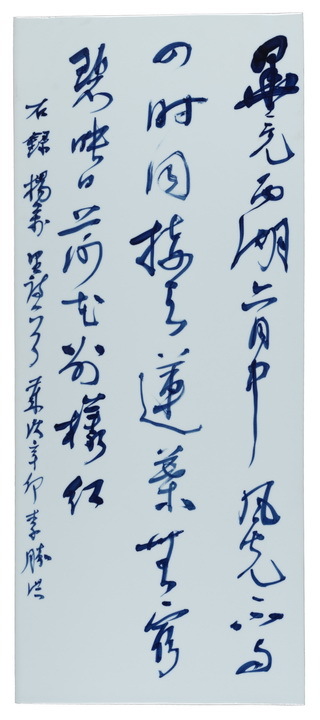 畢竟西湖六月中風光不与
四时同接天蓮葉無窮
碧映日荷花别樣红
右録楊萬里詩一首歲次辛卯李勝洪